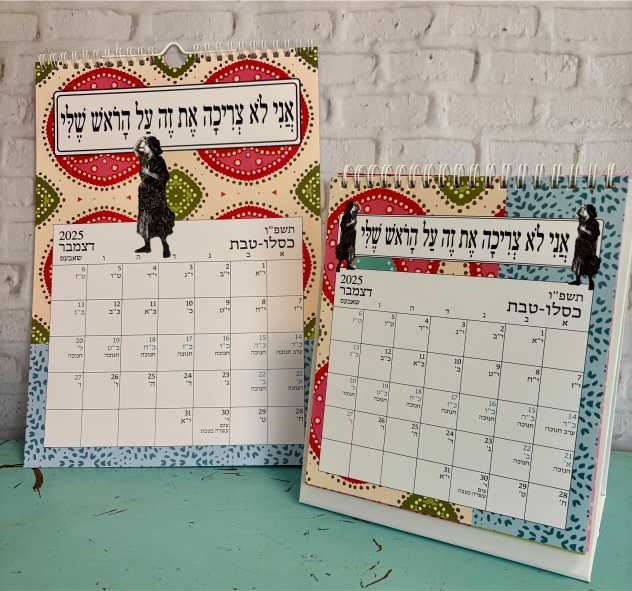 אֲנִי לֹא צְרִיכָה אֶת זֶה עַל הָרֹאשׁ שֶׁלִּי
תשפ"ו 2025
כסלו-טבת דצמבר
א ב ג ד ה ו שאבעס
1 2 3 4 5 6
י"א י"ב י"ג י"ד ט"ו ט"ז
7 8 9 10 11 12 13
י"ז י"ח י"ט כ' כ"א כ"ב כ"ג
14 15 16 17 18 19 20
כ"ד כ"ה כ"ו כ"ז כ"ח כ"ט ל'
ערב חנוכה חנוכה חנוכה חנוכה חנוכה חנוכה חנוכה
21 22 23 24 25 26 27
א' ב' ג' ד' ה' ו' ז'
חנוכה חנוכה
28 29 30 31
ח' ט' י' י"א
צום
עשרה בטבת
אֲנִי לֹא צְרִיכָה אֶת זֶה עַל הָרֹאשׁ שֶׁלִּי
תשפ"ו 2025
כסלו-טבת דצמבר
א ב ג ד ה ו שאבעס
1 2 3 4 5 6
י"א י"ב י"ג י"ד ט"ו ט"ז
7 8 9 10 11 12 13
י"ז י"ח י"ט כ' כ"א כ"ב כ"ג
14 15 16 17 18 19 20
כ"ד כ"ה כ"ו כ"ז כ"ח כ"ט ל'
ערב חנוכה חנוכה חנוכה חנוכה חנוכה חנוכה חנוכה
21 22 23 24 25 26 27
א' ב' ג' ד' ה' ו' ז'
חנוכה חנוכה
28 29 30 31
ח' ט' י' י"א
צום
עשרה בטבת